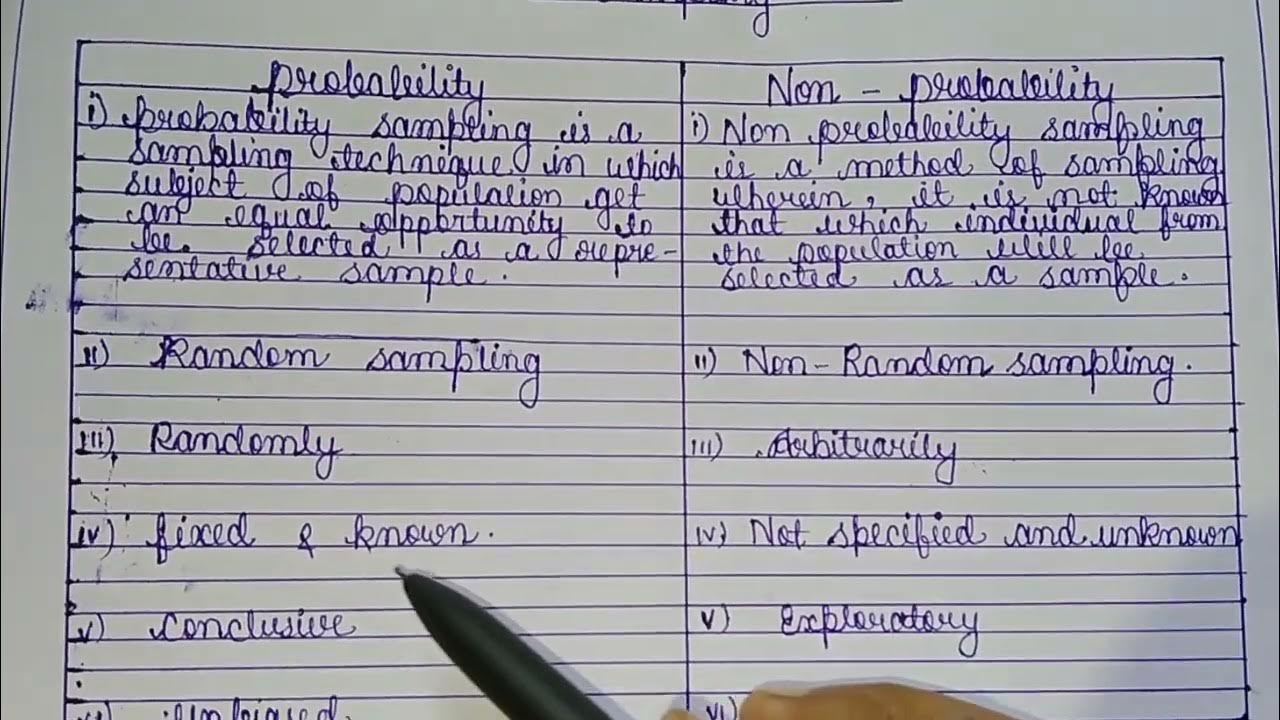 Probability
Non - probability
i) Probability sampling is a
sampling technique in which
subject of population get
an equal opportunity to
be selected as a repre-
sentative sample.
i) Non probability sampling
is a method of sampling
wherein, it is not known
that which individual from
the population will be
selected as a sample.
ii) Random sampling
ii) Non-Random sampling.
iii) Randomly
iii) Arbitrarily
iv) fixed & known.
iv) Not specified and unknown
v) Conclusive
v) Exploratory
vi)